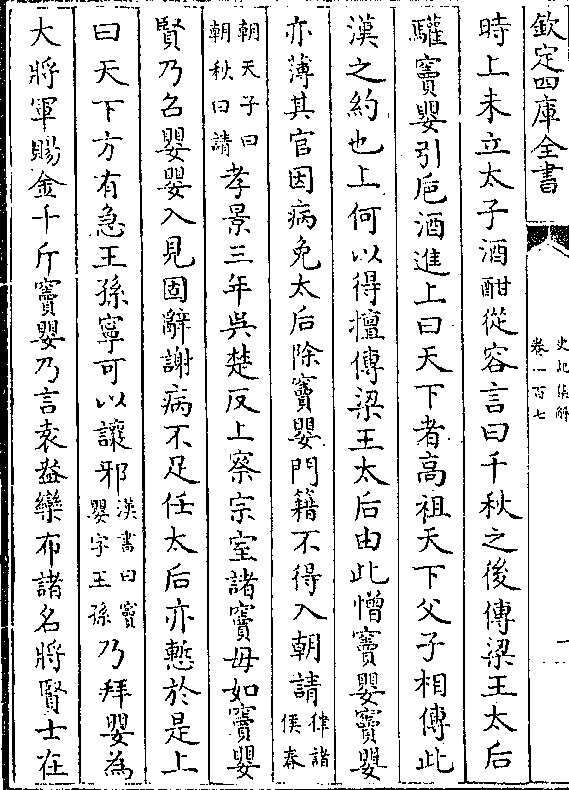 欽定四庫全書
史記集解
卷一百七
時上未立太子酒酣從容言曰千秋之後傳梁王太后
驩竇嬰引巵酒進上曰天下者高祖天下父子相傳此
漢之約也上何以得擅傳梁王太后由此憎竇嬰竇嬰
亦薄其官因病免太后除竇嬰門籍不得入朝請律諸侯春
朝天子曰朝秋曰請孝景三年吳楚反上察宗室諸竇毋如竇嬰
賢乃召嬰嬰入見固辭謝病不足任太后亦慙於是上
曰天下方有急王孫寧可以讓邪漢書曰竇嬰字王孫乃拜嬰為
大將軍賜金千斤竇嬰乃言袁盎欒布諸名將賢士在